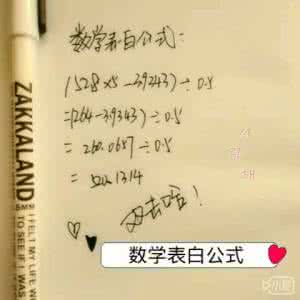 数学表白公式:
(528×5-3.9343)÷0.5
=(264-3.9343)÷0.5
=260.0657÷0.5
=520.1314
사
랑
해
ZAKKALAND
I FELT MY LIFE W
TO SEE IF I WAS
数学表白公式